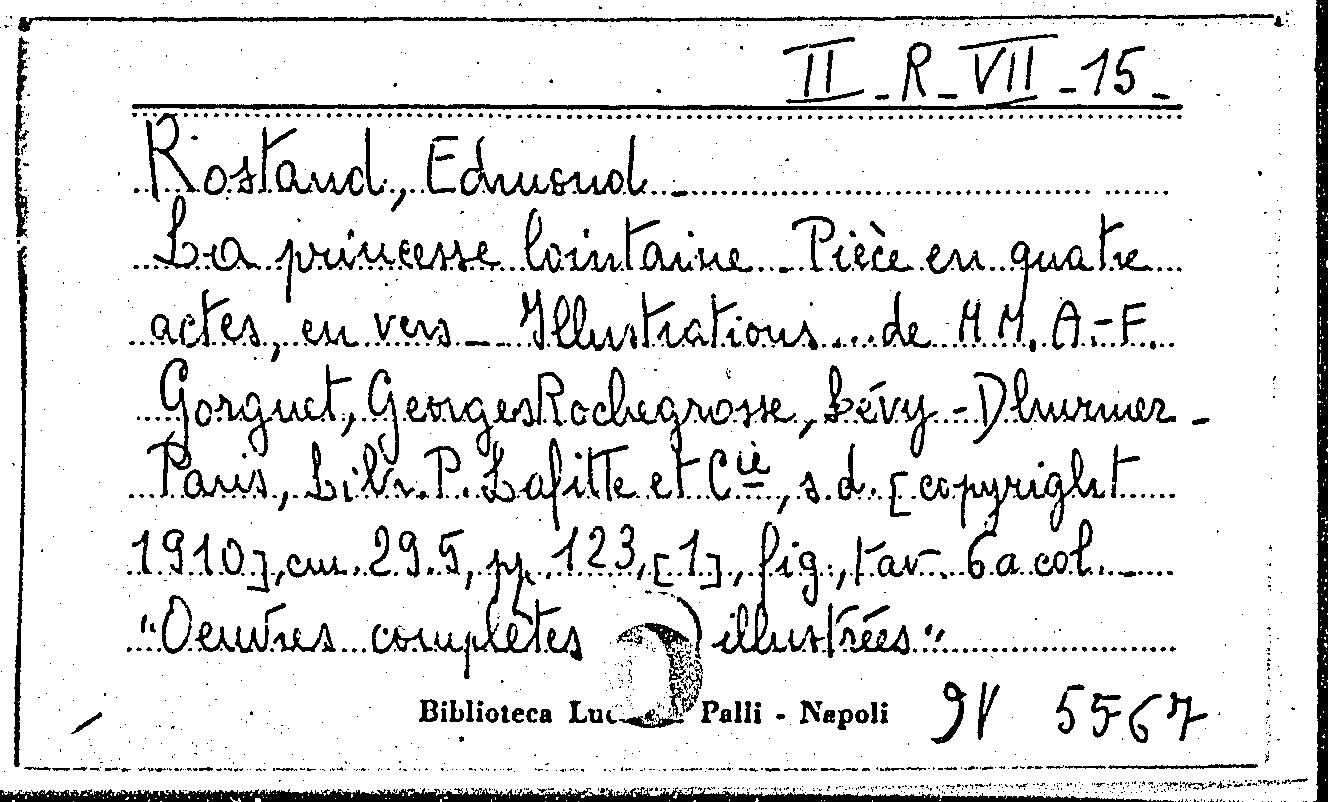 II - R - VII - 15 -
Rostand, Edmond -
La princesse lointaine - Pièce en quatre
actes, en vers - Illustrations... de MM. A.-F.
Gorguet, Georges Rochegrosse, Lévy - Dhurmer -
Paris, Libr. P. Lafitte et Cie, s.d. [copyright
1910], cm. 29.5, pp. 123, [1], fig., tav. 6 a col. -
"Oeuvres complètes illustrées"
Biblioteca Palli - Napoli
5567